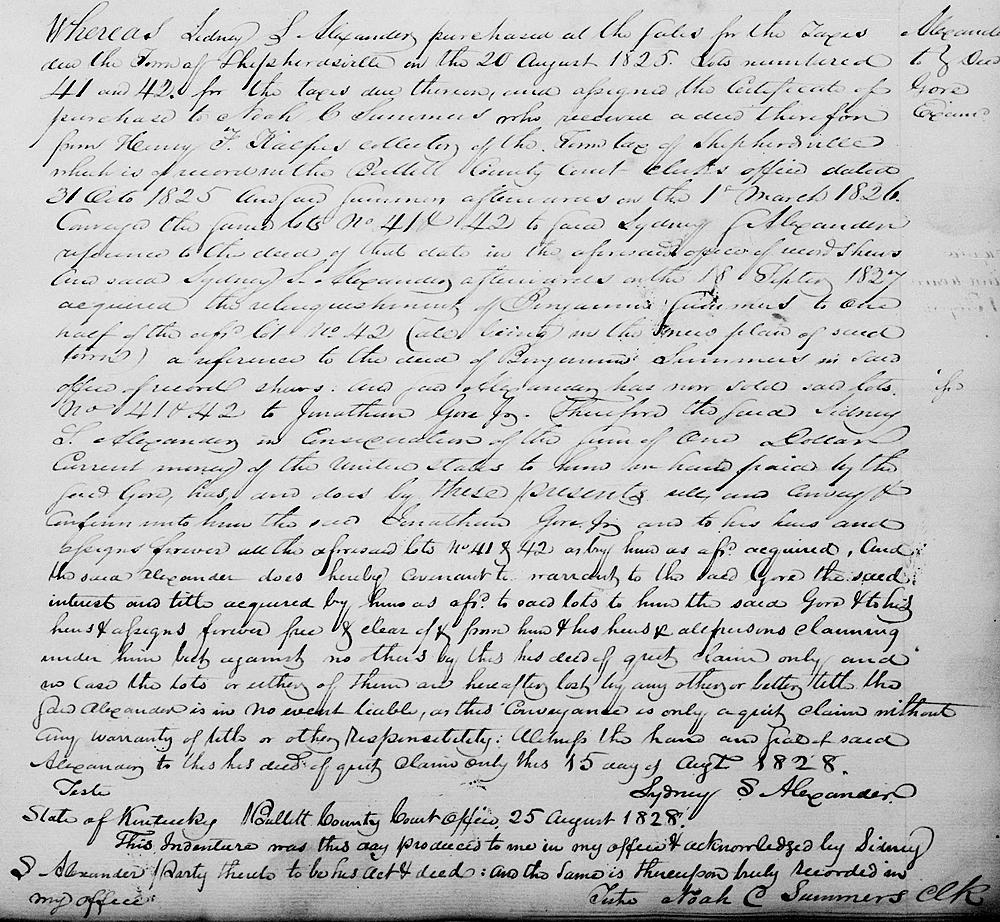 Whereas Sidney S Alexander purchased at the Sales for the Taxes
due the Town of Shepherdsville on the 20 August 1825. Lots numbered
41 and 42. for the taxes due thereon, and assigned the Certificate of
purchase to Noah C Summers who received a deed therefor
from Henry F. Kalfus collector of the Town tax of Shepherdsville
which is of record in the Bullitt County Court clerks office dated
31 Octo 1825 And said Summers afterwards on the 1st March 1826.
Conveyed the same lots No 41 & 42 to said Sydney S Alexander
reference to the deed of that date in the aforesaid office of record shews
And said Sydney S. Alexander afterwards on the 18 Septr 1827
acquired the relinquishment of Benjamin Summers to one
half of the afsd lot No 42 in the new plan of said
town) a reference to the deed of Benjamin Summers in said
office of record shews: and said Alexander has now sold said lots
Nos 41 & 42 to Jonathan Gore Jr. Therefore the said Sidney
S. Alexander in Consideration of the sum of One Dollar
Current money of the United States to him in hand paid by the
said Gore, has, and does by these presents sell and convey &
confirm unto him the said Jonathan Gore Jr and to his heirs and
assigns forever all the aforesaid lots No 41 & 42 as by him as afsd acquired, And
the said Alexander does hereby covenant & warrant to the said Gore the said
interest and title acquired by him as afsd to said lots to him the said Gore & to his
heirs & assigns forever free & clear of & from him & his heirs & all persons claiming
under him but against no others by this his deed of quit claim only and
no case the lots or either of them are hereafter lost by any other or better title the
said Alexander is in no event liable, as this Conveyance is only a quit claim without
any warranty of title or other responsibility: Witness the hand and seal of said
Alexander to this his deed of quit claim only this 15 day of Augt 1828.
Teste
Sydney S Alexander
State of Kentucky Bullitt County Court Office, 25 August 1828.
This Indenture was this day produced to me in my office & acknowledged by Sidney
S Alexander party thereto to be his Act & deed: and the same is thereupon truly recorded in
my office
Teste Noah C Summers Clk
Alexander
to } Deed
Gore
Examd